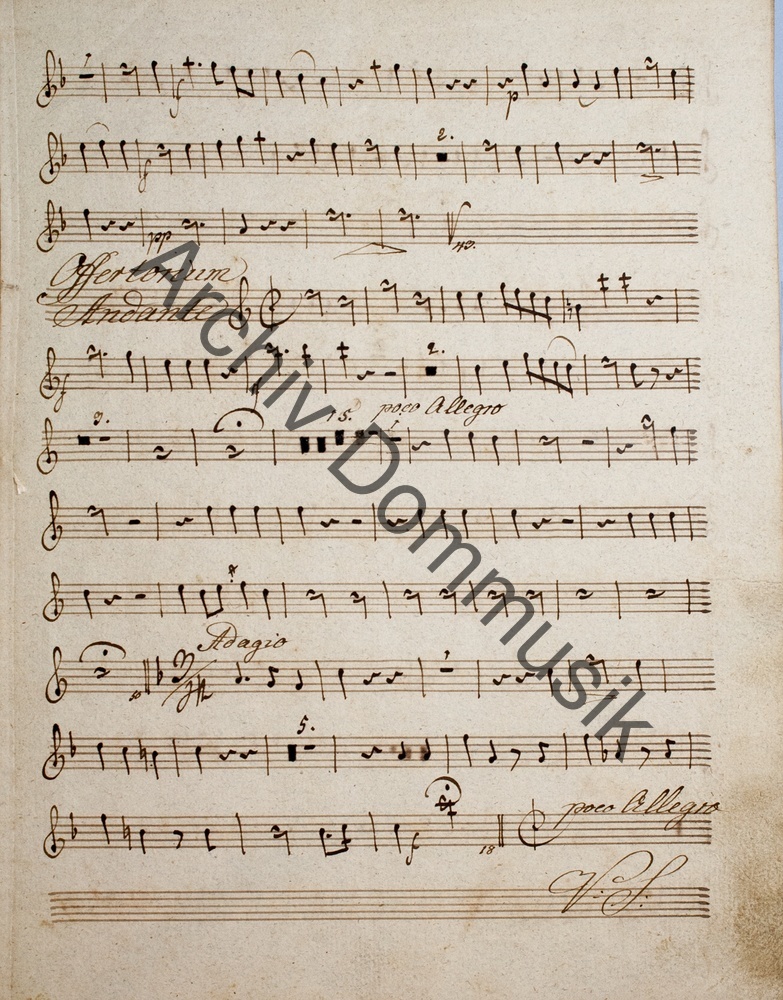 1
f
p
f
2.
pp
43.
Offertorium
Andante
f
2.
3.
15.
poco Allegro
1
Adagio
1
5.
poco Allegro
f
18
V: S:
Archiv Dommusik